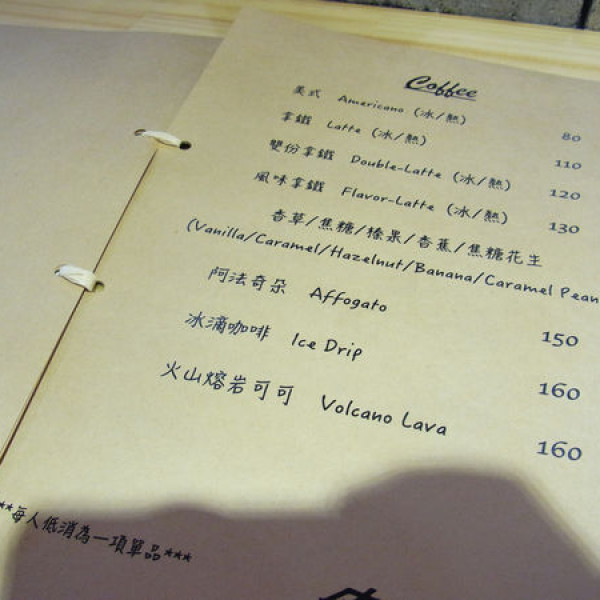 Coffee
美式 Americano (冰/熱) 80
拿鐵 Latte (冰/熱) 110
雙份拿鐵 Double-Latte (冰/熱) 120
風味拿鐵 Flavor-Latte (冰/熱) 130
香草/焦糖/榛果/香蕉/焦糖花生
(Vanilla/Caramel/Hazelnut/Banana/Caramel Pean
阿法奇朵 Affogato 150
冰滴咖啡 Ice Drip 160
火山熔岩可可 Volcano Lava 160
**每人低消為一項單品***